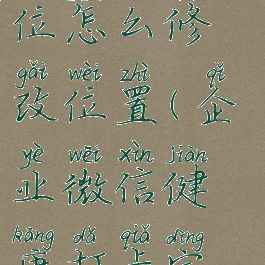 位怎么修
gǎi wèi zhì qǐ
改位置(企
yè wēi xìn jiàn
业微信健
kāng dǎ qiǎ dìng
康打卡定